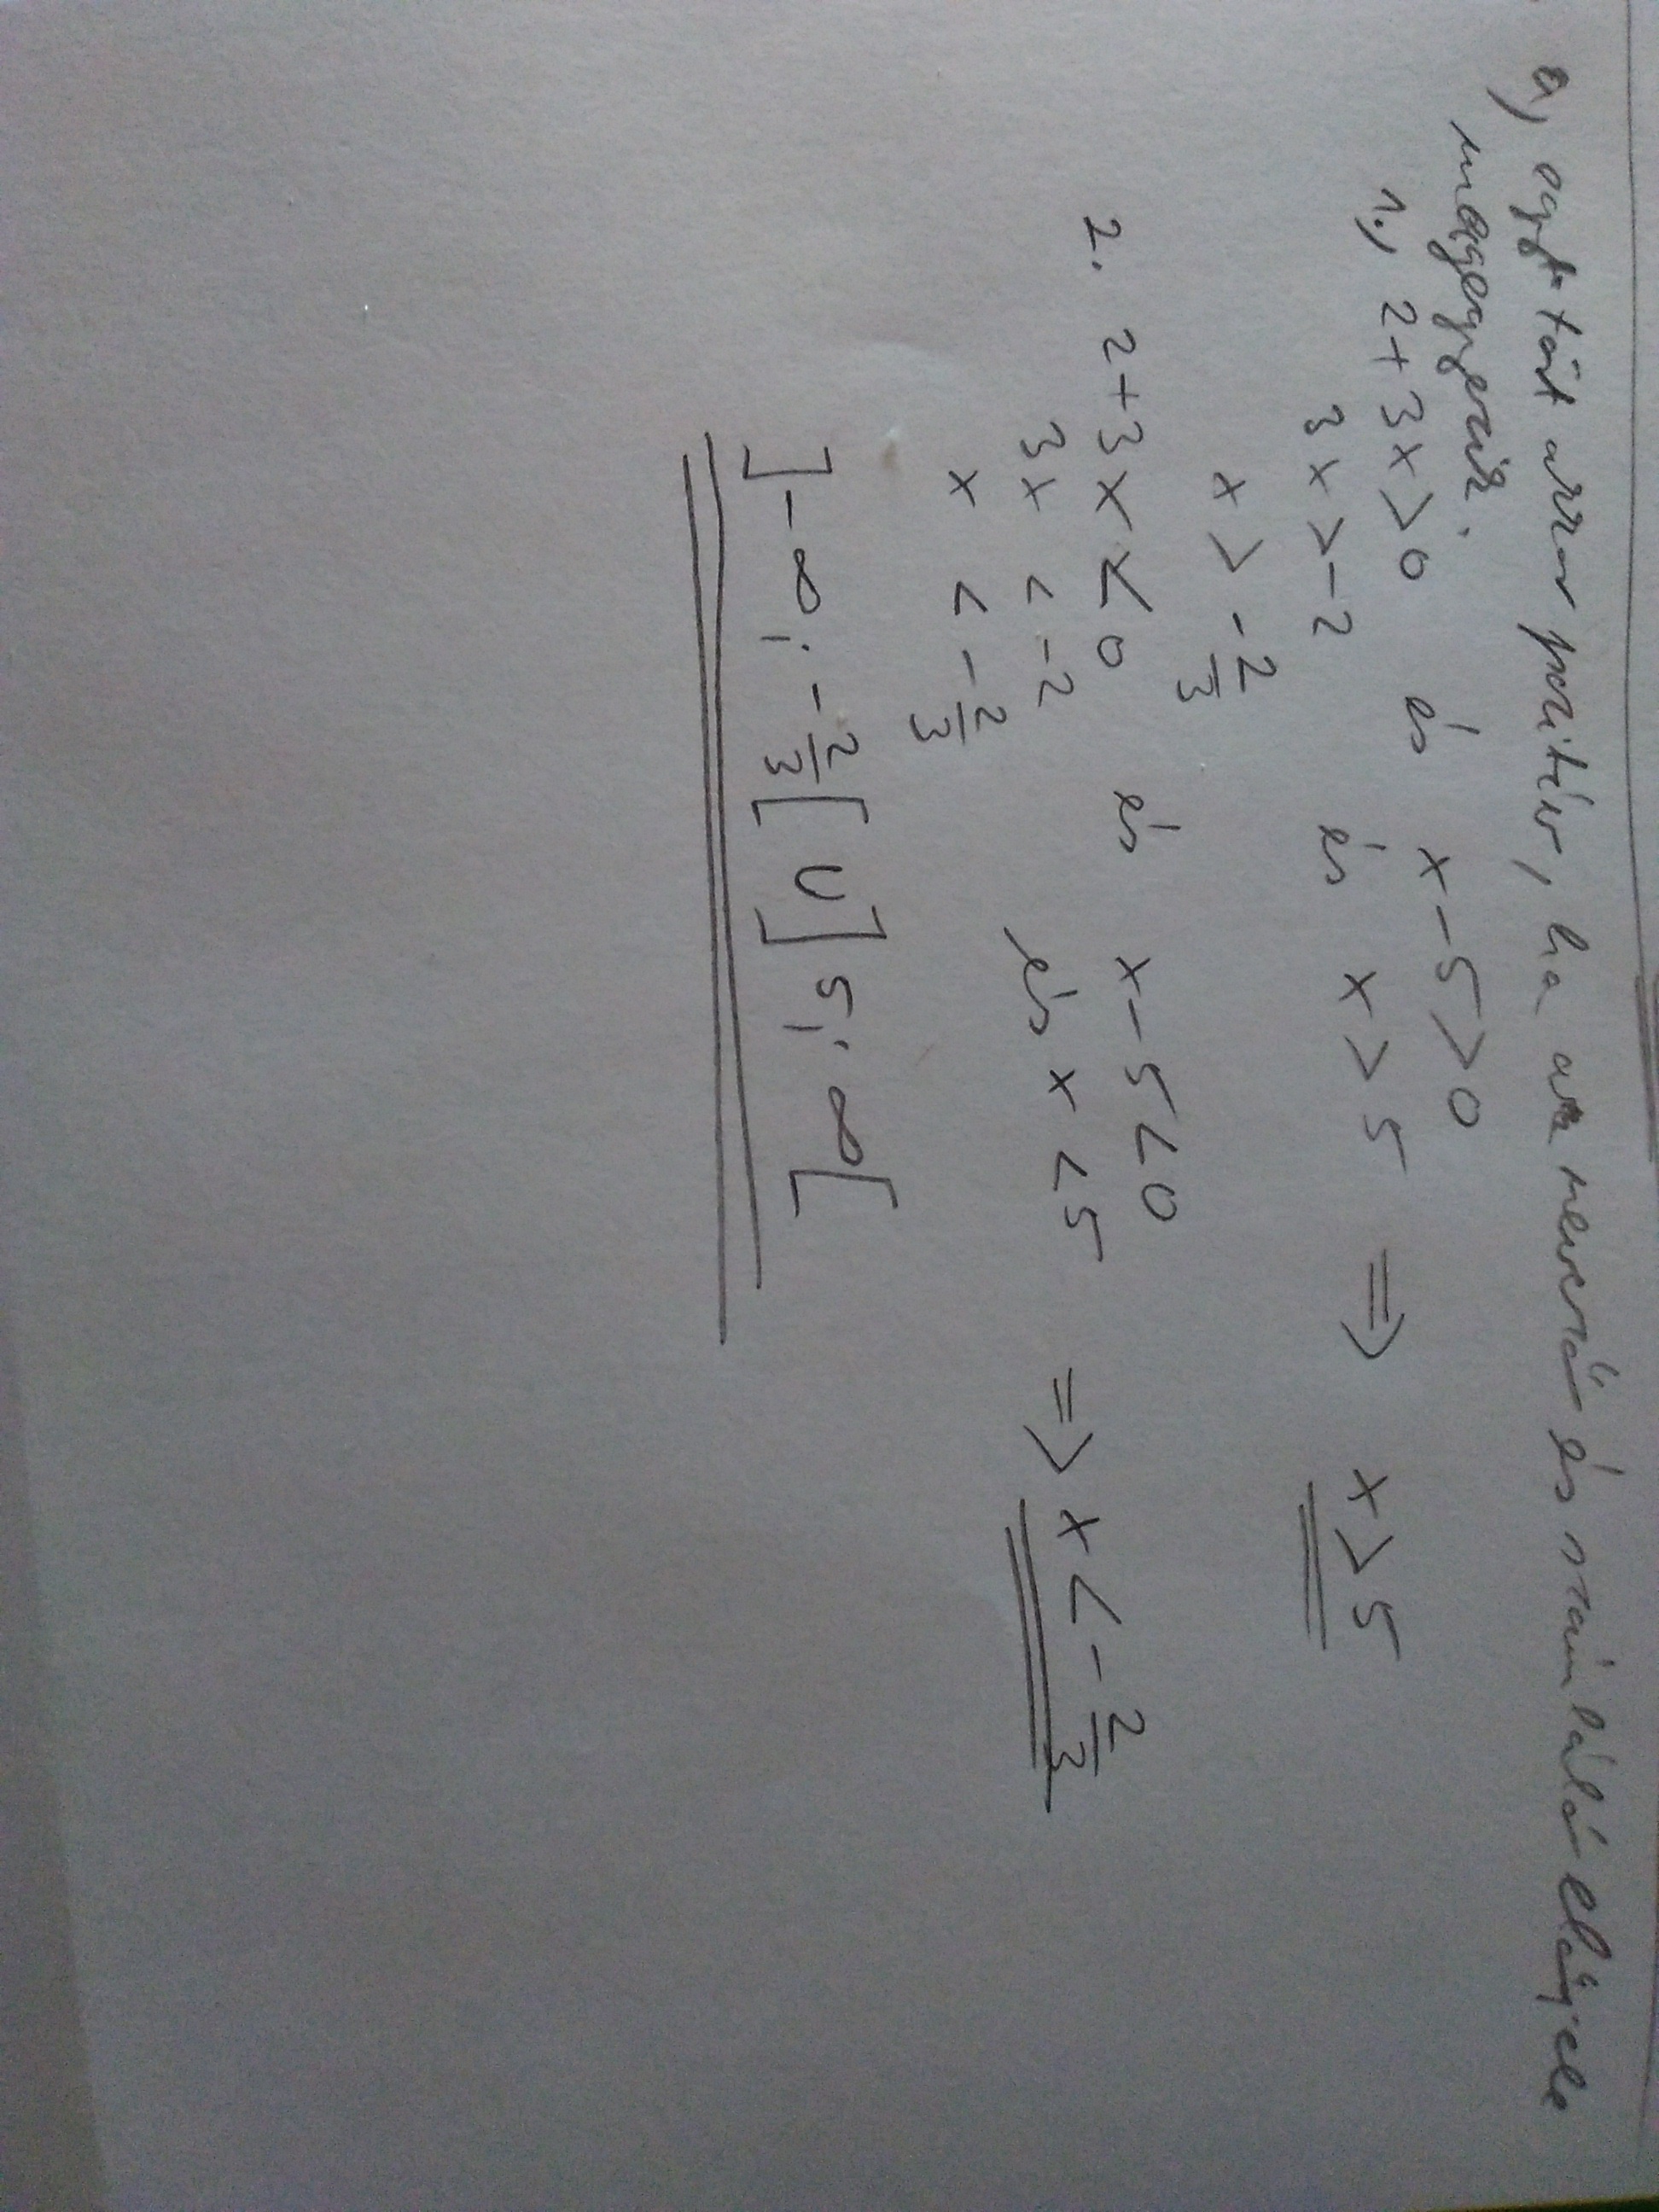 a, egy tört akkor pozitív, ha a nevező és számláló előjele
megegyezik.
1., 2+3x>0 és x-5>0
3x>-2 és x>5 ⇒ x>5
x>-2/3
2. 2+3x<0 és x-5<0
3x<-2 és x<5 ⇒ x<-2/3
x<-2/3
]-∞; -2/3[ ∪ ]5; ∞[